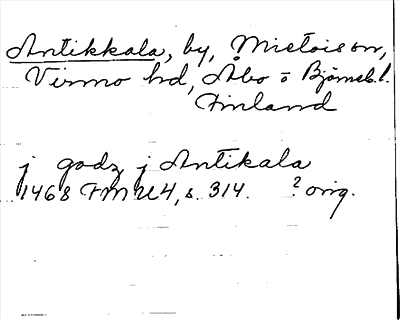 Antikkala, by, Mietois sn,
Virmo hd, Åbo o Björneb. l.
Finland
j godz j Antikala
1468 FMU 4, s. 314. ? orig.